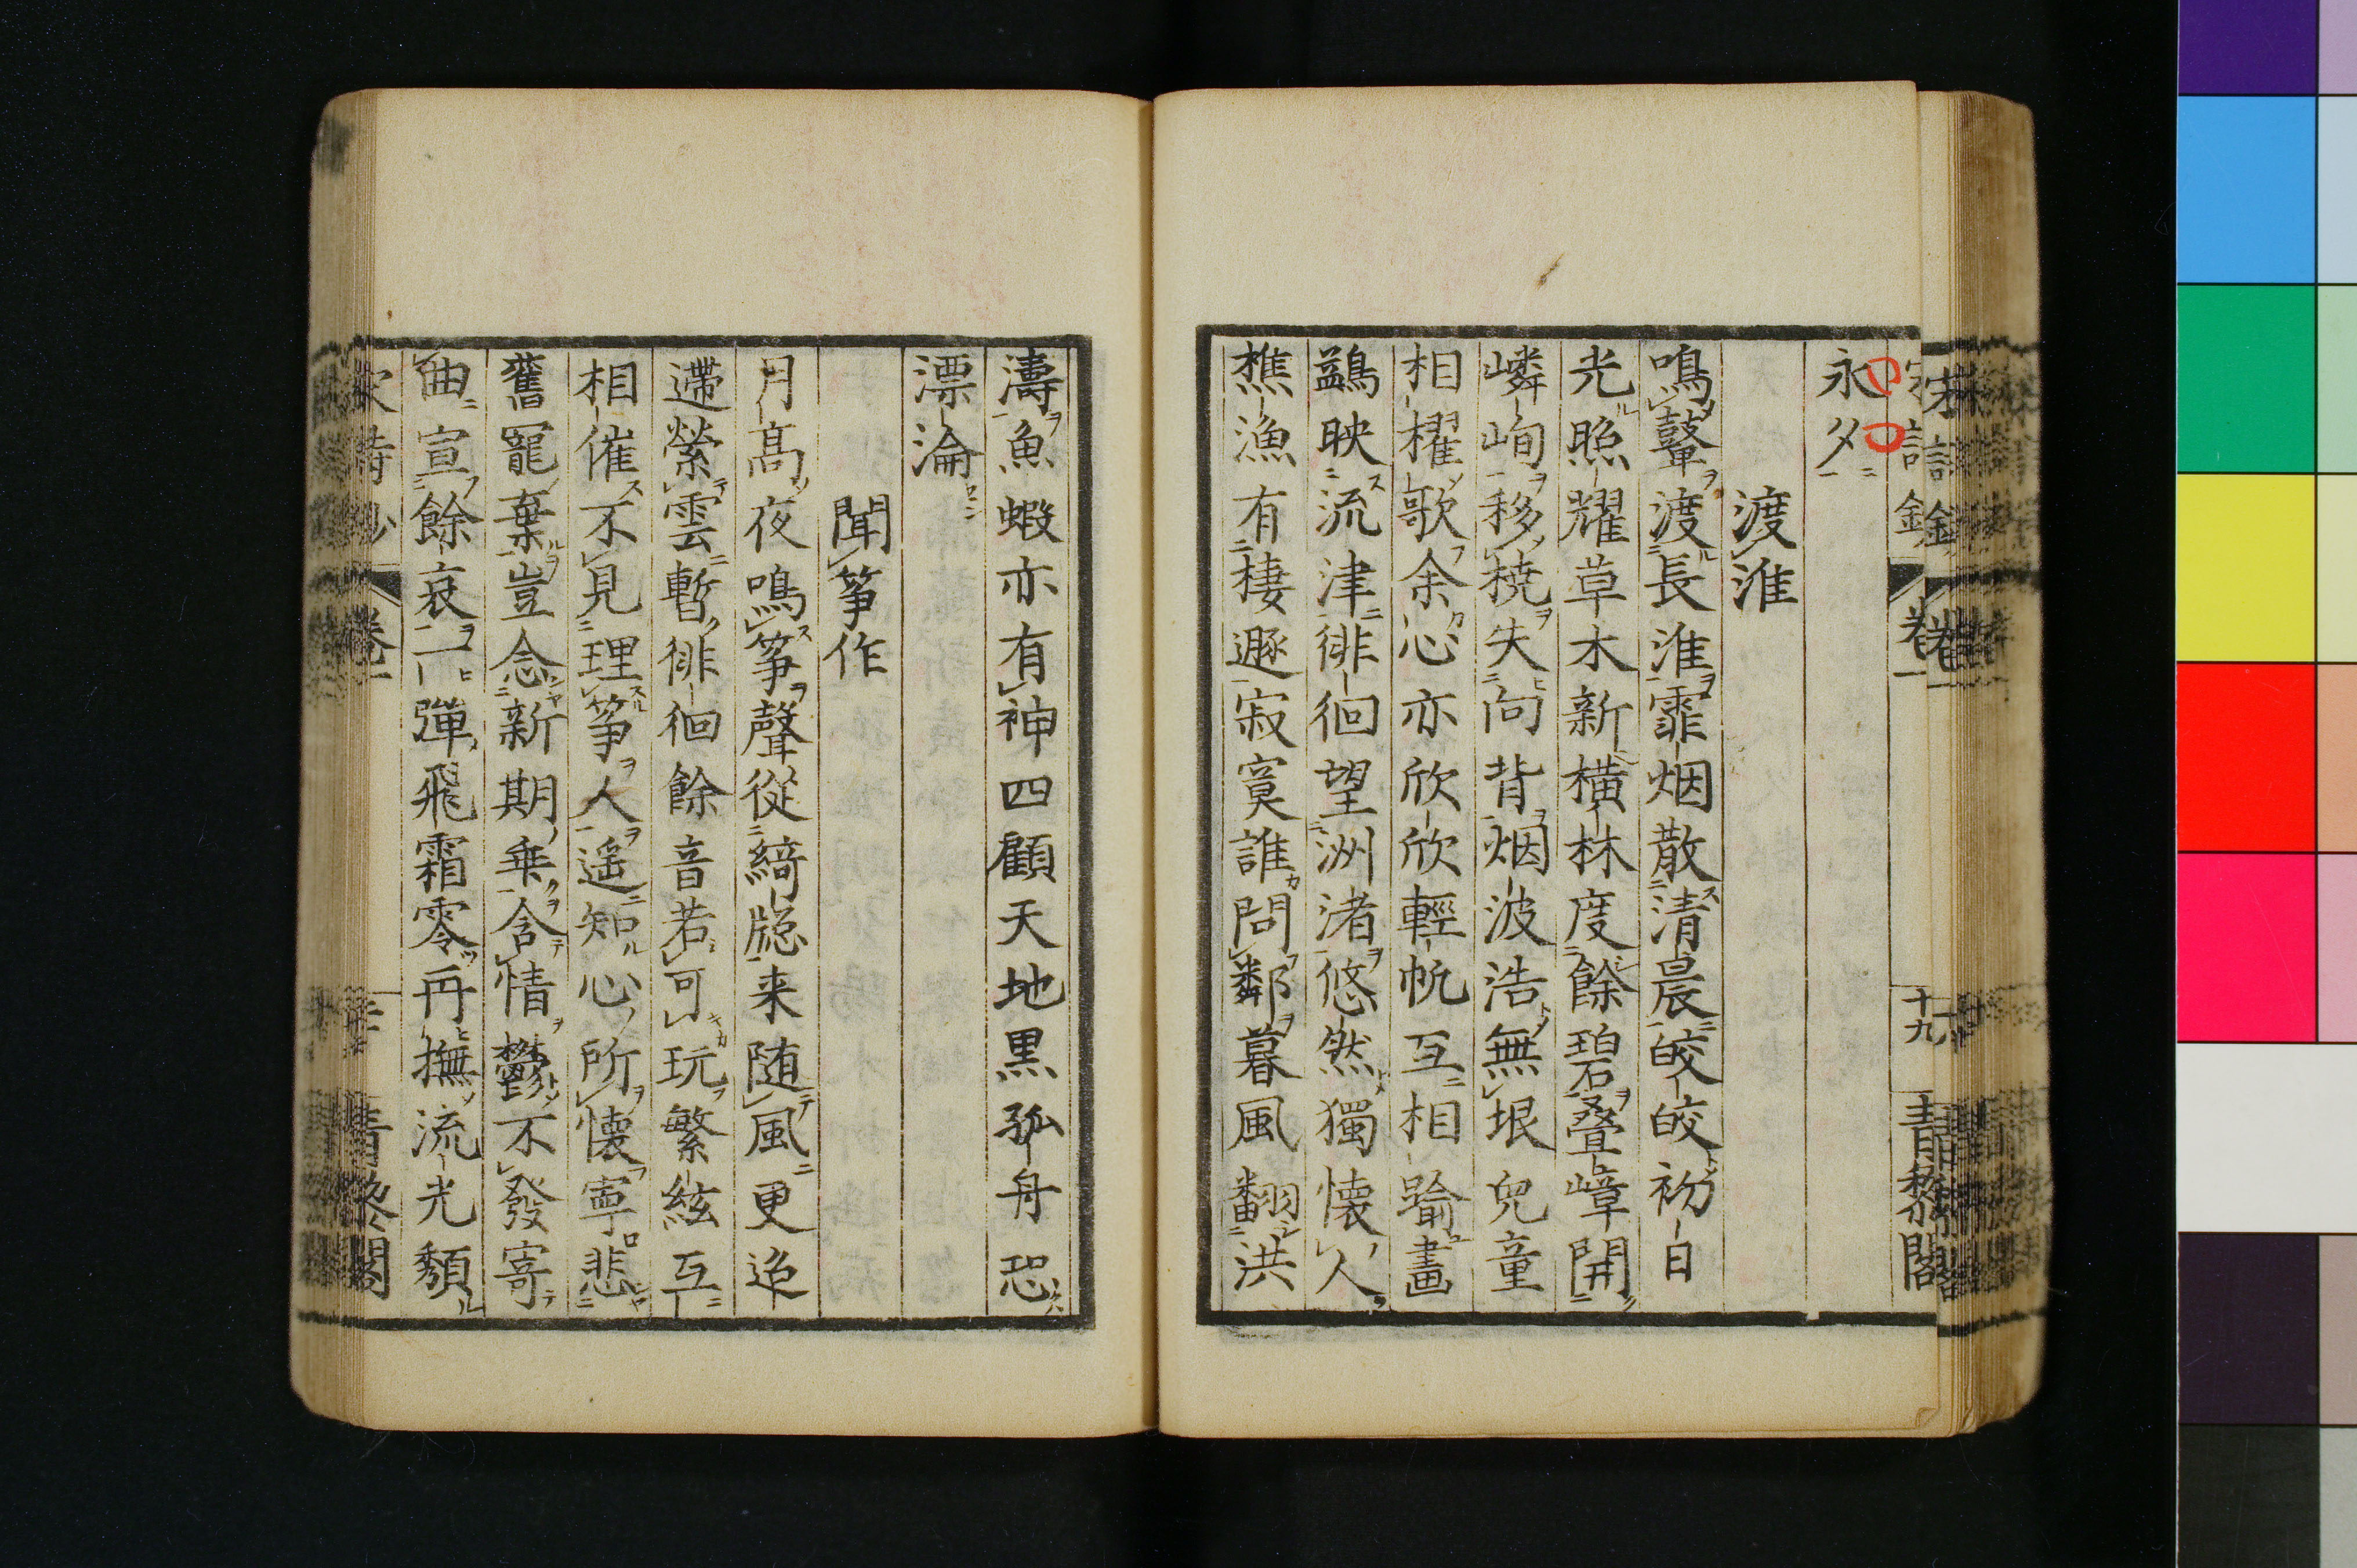 永夕
渡淮
鳴鼛渡長淮霏烟散清晨皎皎初日
光照耀草木新橫林度餘碧疊嶂開
嶙峋移橈失向背烟波浩無垠兒童
相櫂歌余心亦欣欣輕帆互相踰畫
鷁映流津徘徊望洲渚悠然獨懷人
樵漁有棲遯寂寞誰問鄰暮風翻洪
十九
青藜閣
濤魚蝦亦有神四顧天地黒孤舟恐
漂淪
聞箏作
月高夜鳴箏聲從綺牕来随風更迢
遰縈雲暫徘徊餘音若可玩繁絃互
相催不見理箏人遥知心所懷寧悲
舊寵棄豈念新期乖含情鬱不發寄
曲宣餘哀一彈飛霜零再撫流光頽